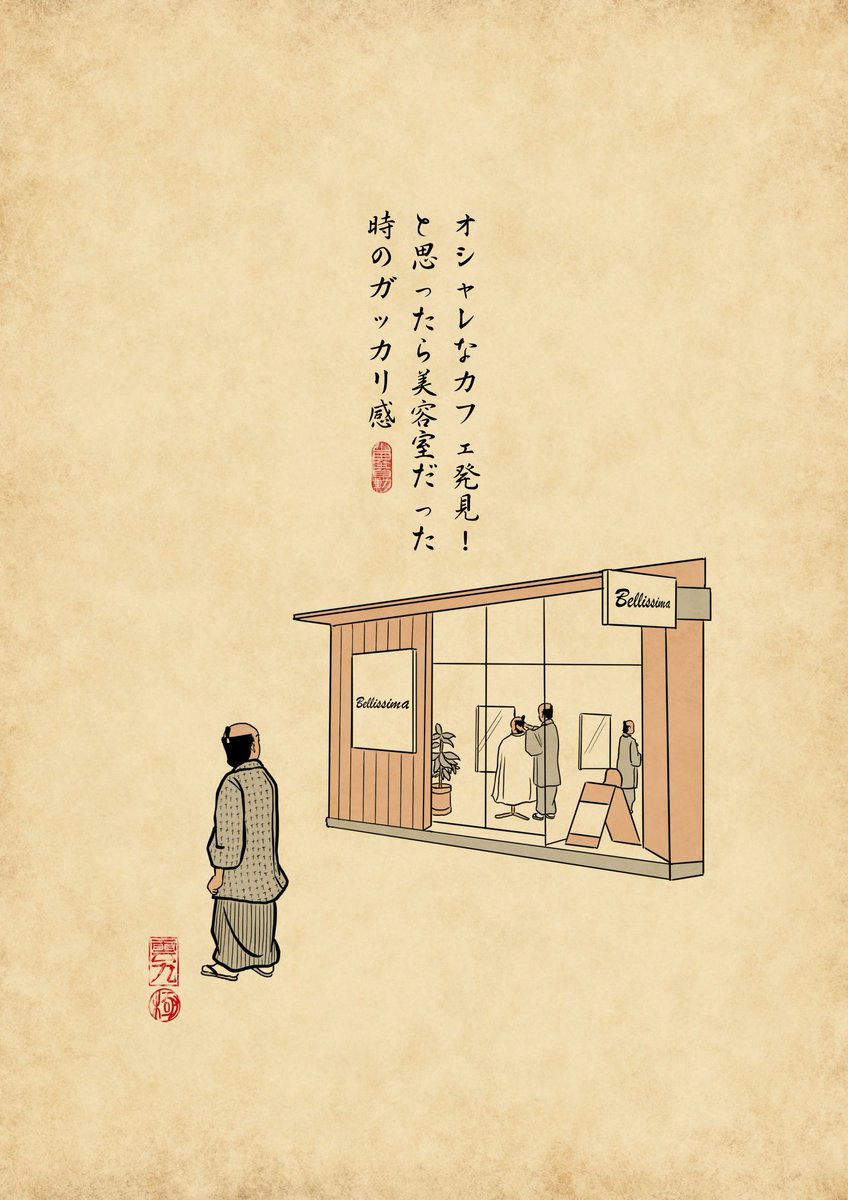 オシャレなカフェ発見！
と思ったら美容室だった
時のガッカリ感
Bellissima
Bellissima